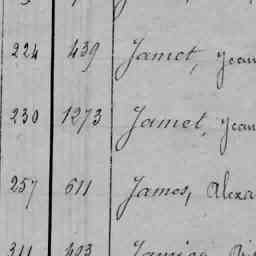 224 439 Jamet, Jean
230 1273 Jamet, Jean
257 611 James, Alexa
311 493